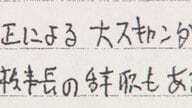 正による 大スキャンダ
校長の辞職もあ